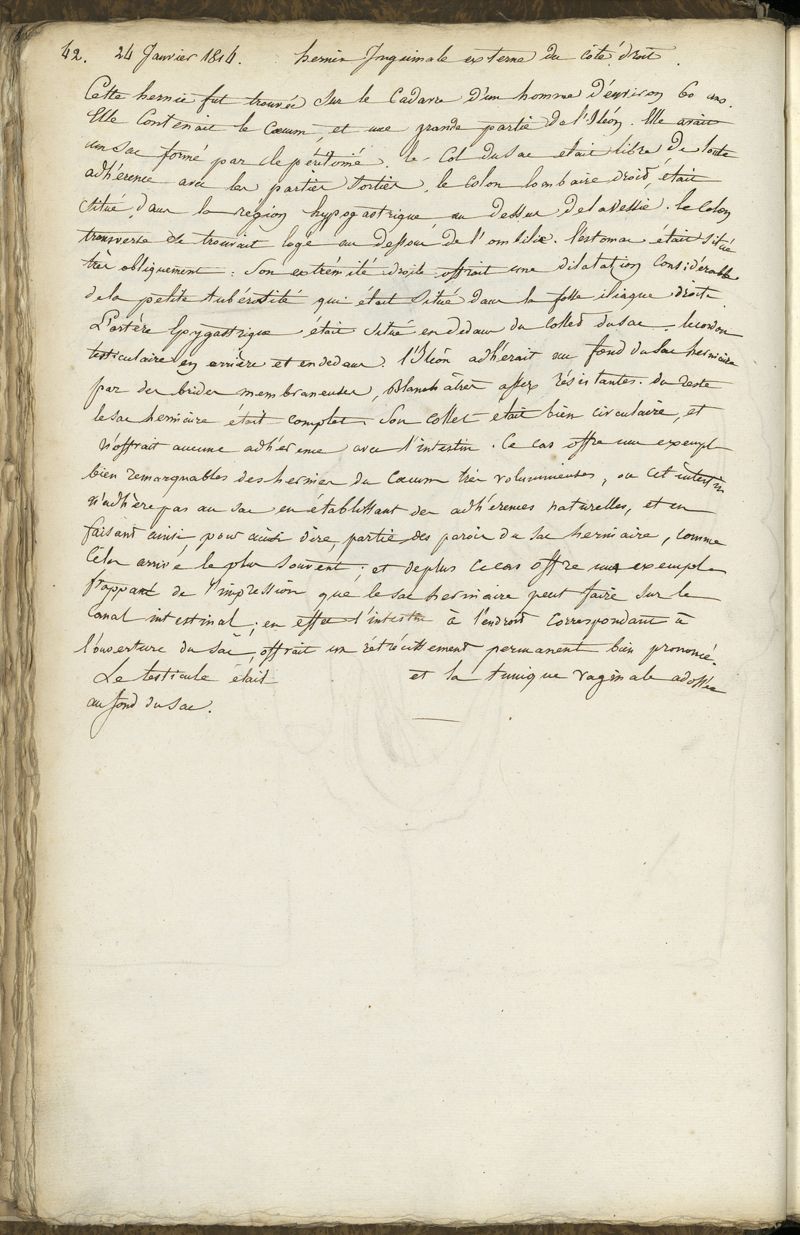 42. 24 Janvier 1814. hernie Inguinale externe du côté droit.
Cette hernie fut trouvée sur le Cadavre d'un homme d'environ 60 ans.
Elle Contenait le Cœcum, et une grande partie de l'Iléon. Elle avait
un sac formé par le péritoine. le Col du sac était libre de toute
adhérence avec les parties sorties. le colon lombaire droit, était
situé dans la région hypogastrique au dessus de la vessie. le Colon
transverse se trouvait logé au dessous de l'ombilic. l'estomac était situé
très obliquement : Son extrémité droite offrait une dilatation considérable
de la petite tubérosité qui était située dans la fosse iliaque droite.
L'artère Epygastrique était située en dedans du Collet du sac. le cordon
testiculaire en arrière et en dedans. l'Iléon adhérait au fond du sac herniaire
par des brides membraneuses, blanchâtres assez résistantes. du reste
le sac herniaire était complet. Son collet était bien circulaire, et
n'offrait aucune adhérence avec l'intestin. Ce cas offre un exemple
bien remarquables des hernies du Cœcum très volumineuses, où cet intestin
n'adhère pas au sac en établissant des adhérences naturelles, et en
faisant ainsi, pour ainsi dire, partie des parois du sac herniaire, comme
cela arrive le plus souvent ; et de plus ce cas offre un exemple
frappant de l'impression que le sac herniaire peut faire sur le
canal intestinal ; en effet l'intestin à l'endroit correspondant à
l'ouverture du sac, offrait un rétrécissement permanent bien prononcé.
Le testicule était et la tunique vaginale adossée
au fond du sac.